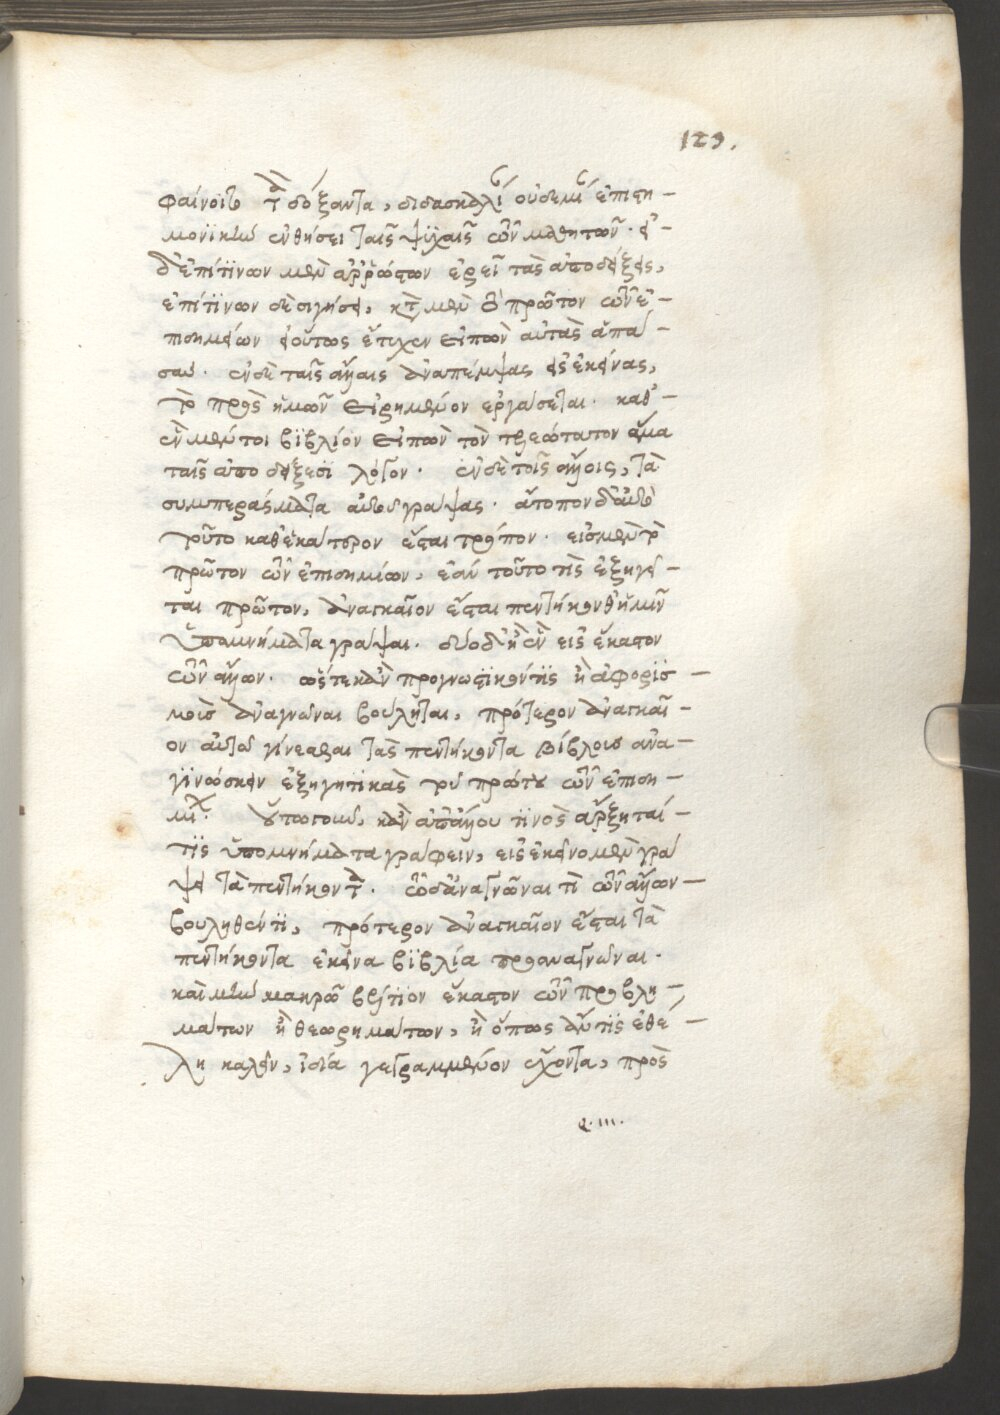 129.
φαίνοιτο τὰ δόξαντα, διδασκαλίαν οὐδεμίαν ἐπιστη-
μονικὴν ἐνθήσει ταῖς ψυχαῖς τῶν μαθητῶν. εἰ
δ' ἐπί τινων μὲν ἀρρώστων ἐρεῖ τὰς ἀποδείξεις,
ἐπί τινων δὲ σιγήσει, κατὰ μὲν τὸ πρῶτον τῶν ἐ-
πιδημιῶν οὕτως ἔτυχεν εἰπὼν αὐτὰς ἁπά-
σας. ἐν δὲ ταῖς ἄλλαις ἀναπέμψας εἰς ἐκείνας,
τὸ πρὸς ἡμῶν εἰρημένον ἐργάσεται. καθ'
ἓν μέντοι βιβλίον εἰπὼν τὸν ἅμα
ταῖς ἀποδείξεσι λόγον. ἐν δὲ τοῖς ἄλλοις, τὰ
συμπεράσματα αὐτοῦ γράψας. ἄτοπον δ' αὐτὸ
τοῦτο καθ' ἑκάτερον ἔσται τρόπον. εἰς μὲν τὸ
πρῶτον τῶν ἐπιδημιῶν, ἐάν τοῦτό τις ἐξηγῆ-
ται πρῶτον, ἀναγκαῖον ἔσται πεντήκονθ' ἡμῖν
ὑπομνήματα γράψαι. δύο δ' ἢ ἓν εἰς ἕκαστον
τῶν ἄλλων. ὥστε κἂν προγνωστικόν τις ἢ ἀφορισ-
μοὺς ἀναγνῶναι βούληται, πρότερον ἀναγκαῖ-
ον αὐτῷ γίνεσθαι τὰς πεντήκοντα βίβλους ἀνα-
γινώσκειν ἐξηγητικὰς τοῦ πρώτου τῶν ἐπιδη-
μιῶν. κἂν ἀπ' ἄλλου τινὸς ἄρξηταί
τις ὑπομνήματα γράφειν, εἰς ἐκεῖνο μὲν γρά
ψει τὰ πεντήκοντα. τῶδ' ἀναγνῶναί τι τῶν ἄλλων
βουληθέντι, πρότερον ἀναγκαῖον ἔσται τὰ
πεντήκοντα ἐκεῖνα βιβλία προαναγνῶναι.
καὶ μὴν μακρῷ βέλτιον ἕκαστον τῶν προβλη-
μάτων ἢ θεωρημάτων, ἢ ὅπως ἄν τις ἐθέ-
λῃ καλεῖν, ἰδίᾳ γεγραμμένον ἔχοντα, πρὸς